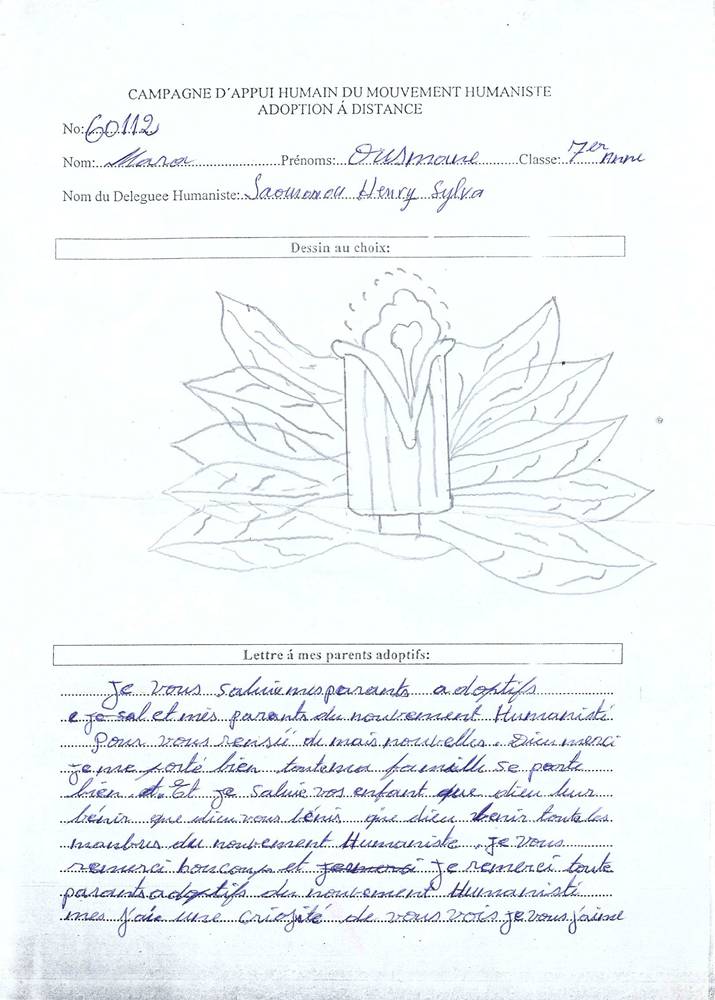 CAMPAGNE D´APPUI HUMAIN DU MOUVEMENT HUMANISTE
ADOPTION Á DISTANCE
No: 60112
Nom: Mara Prénoms: Ousmane Classe: 7er Anne
Nom du Deleguee Humaniste: Henry Sylva
Dessin au choix:
Lettre á mes parents adoptifs:
Je vous saluie mes parents adoptifs
e je sal et mes parents du nouvement Humanisté
Pour vous de mais nouvelles. Dieu merci
je me porté bien toute ma famille se porte
bien et. Et je salue vos enfant que dieu leur
bénir que dieu vous bénis que dieu benir toute les
manbres du nouvement Humaniste. je vous
remerci boucoup et je remerci toute
parents adoptifs du nouvement Humanisté
mes j'aie une criosité de vous vois je vous j'aime